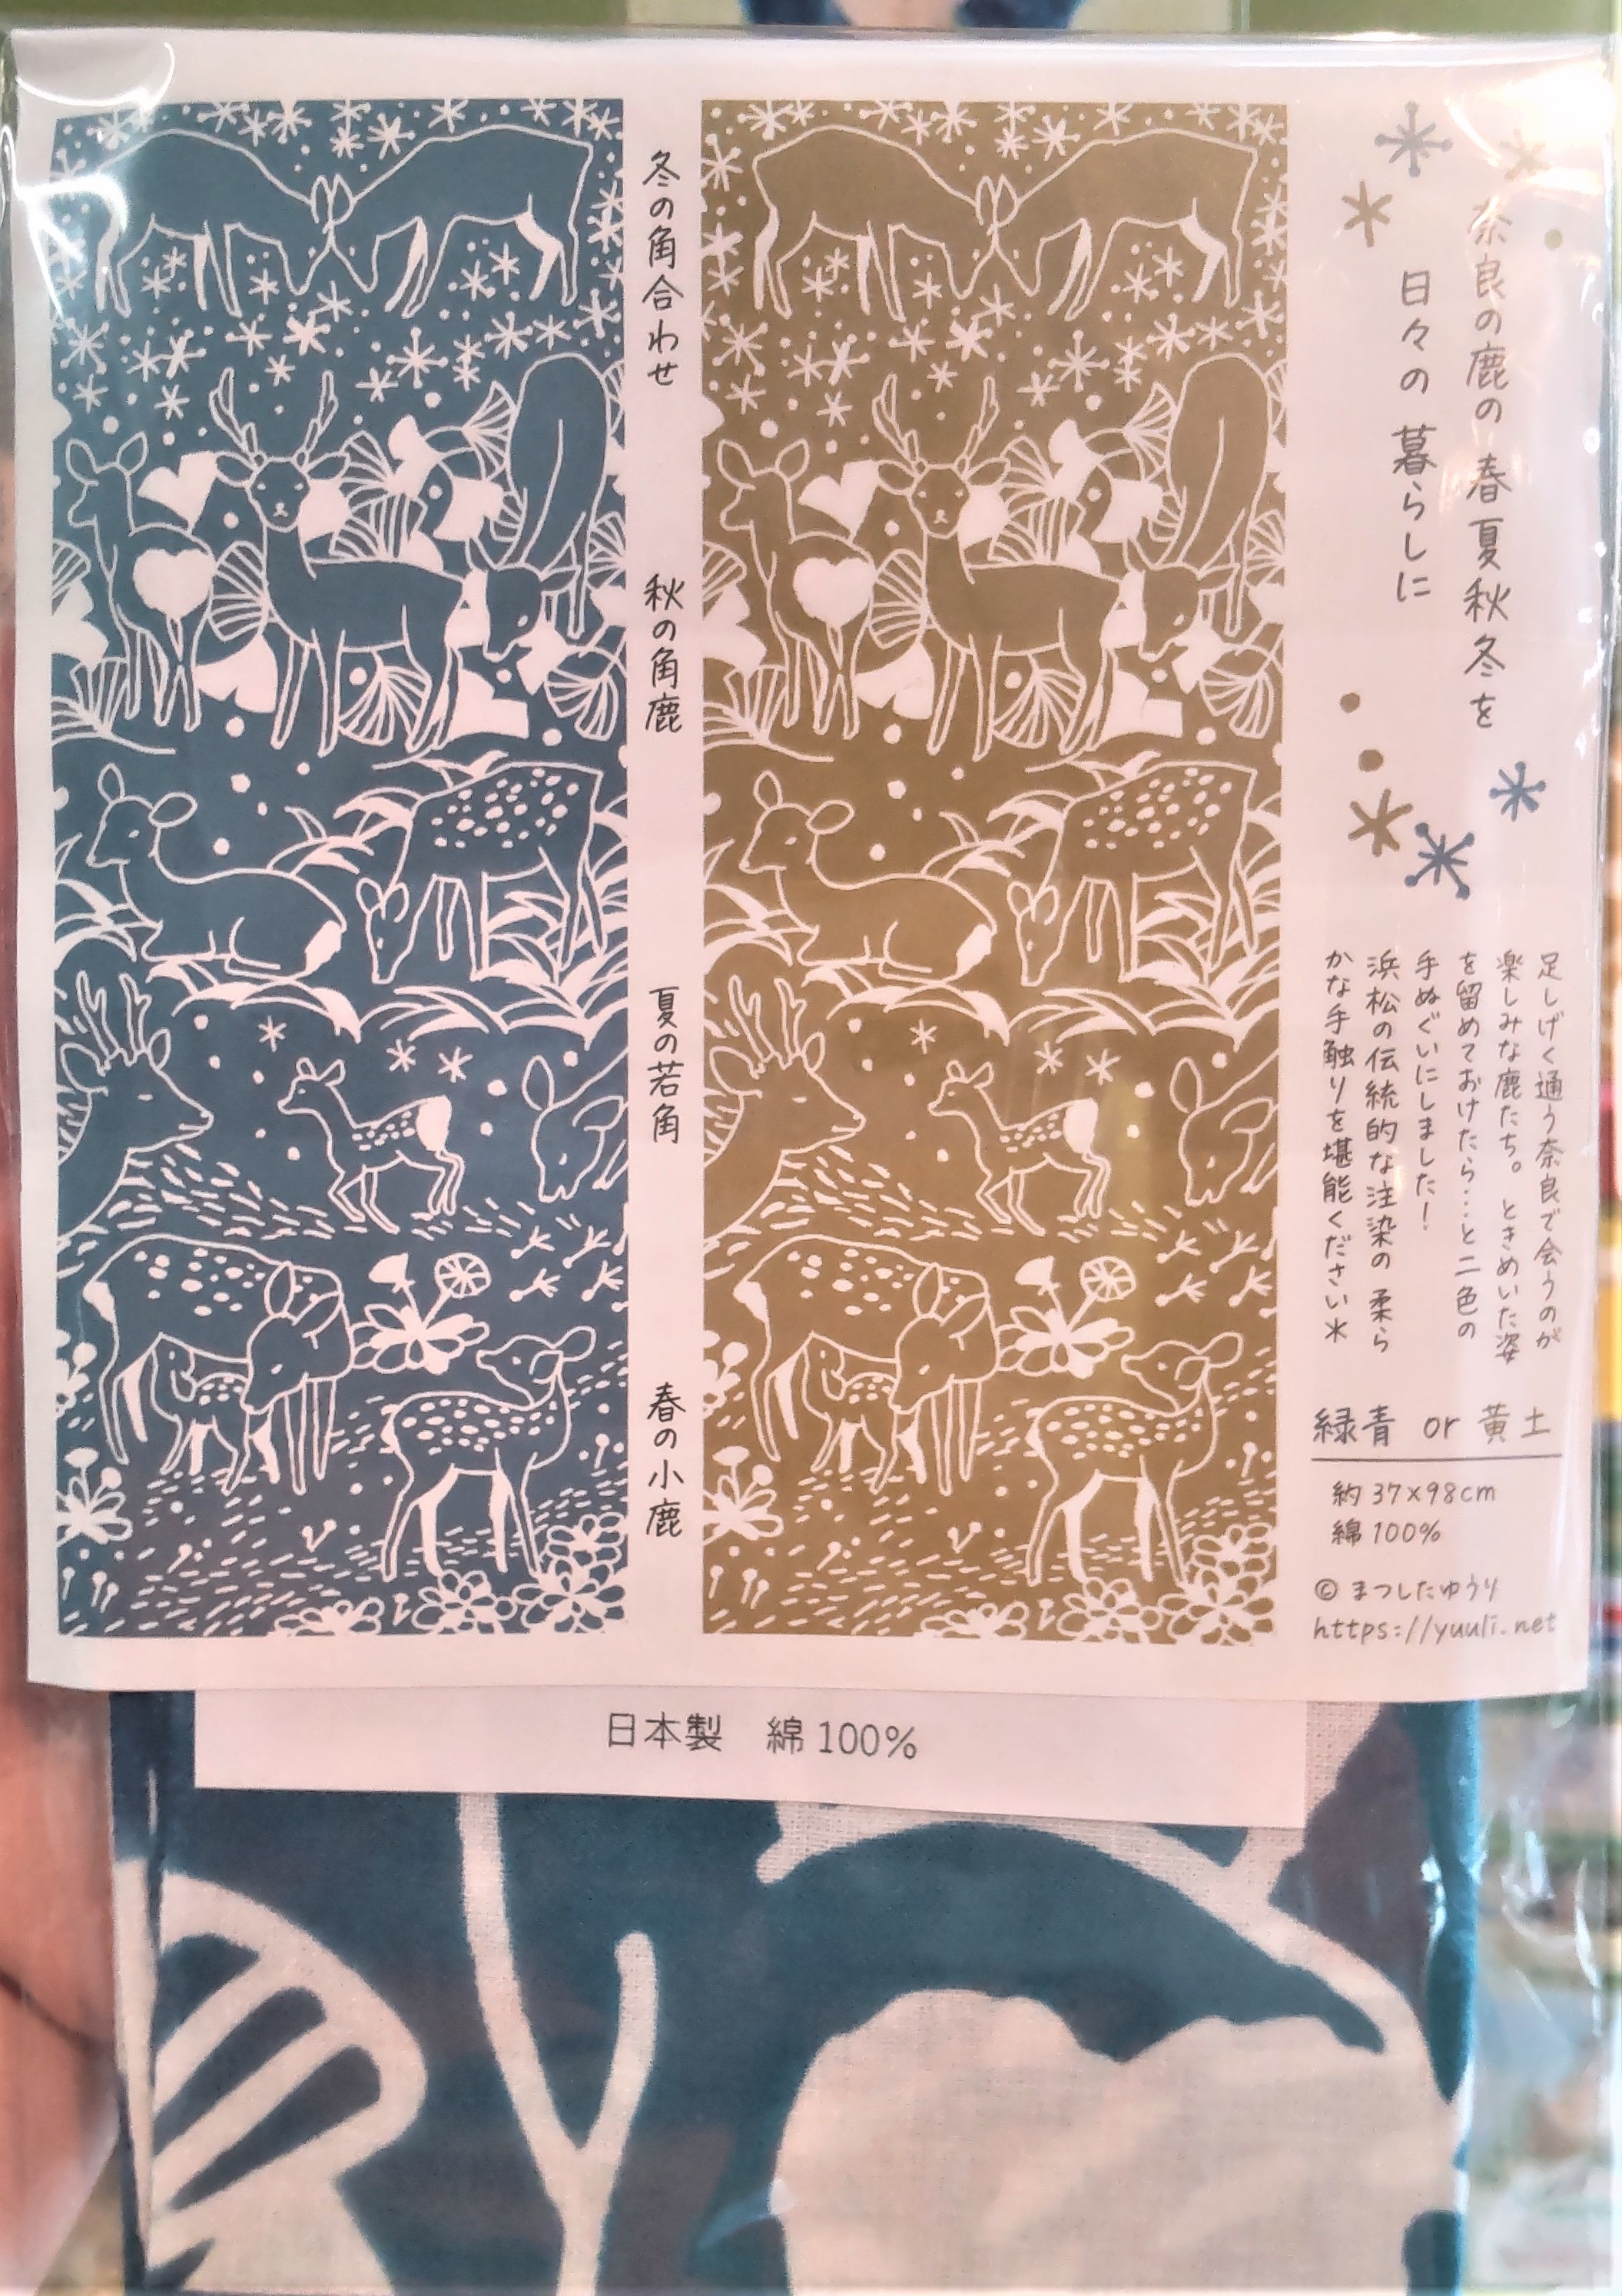 奈良の鹿の春夏秋冬を
日々の暮らしに
足しげく通う奈良で会うのが
楽しみな鹿たち。ときめいた姿
を留めておけたら…と二色の
手ぬぐいにしました！
浜松の伝統的な注染の柔ら
かな手触りを堪能ください＊
緑青 or 黄土
約37×98cm
綿100%
© まつしたゆうり
https://yuuli.net
冬の角合わせ
秋の角鹿
夏の若角
春の小鹿
日本製 綿100%